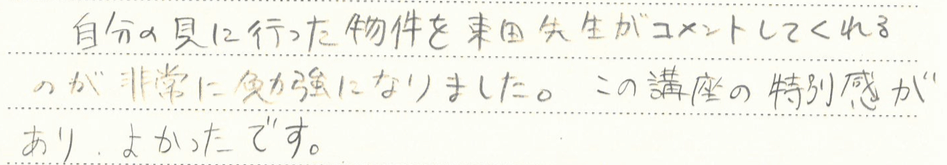 自分の見に行った物件を東田先生がコメントしてくれる
のが非常に勉強になりました。この講座の特別感が
あり、よかったです。